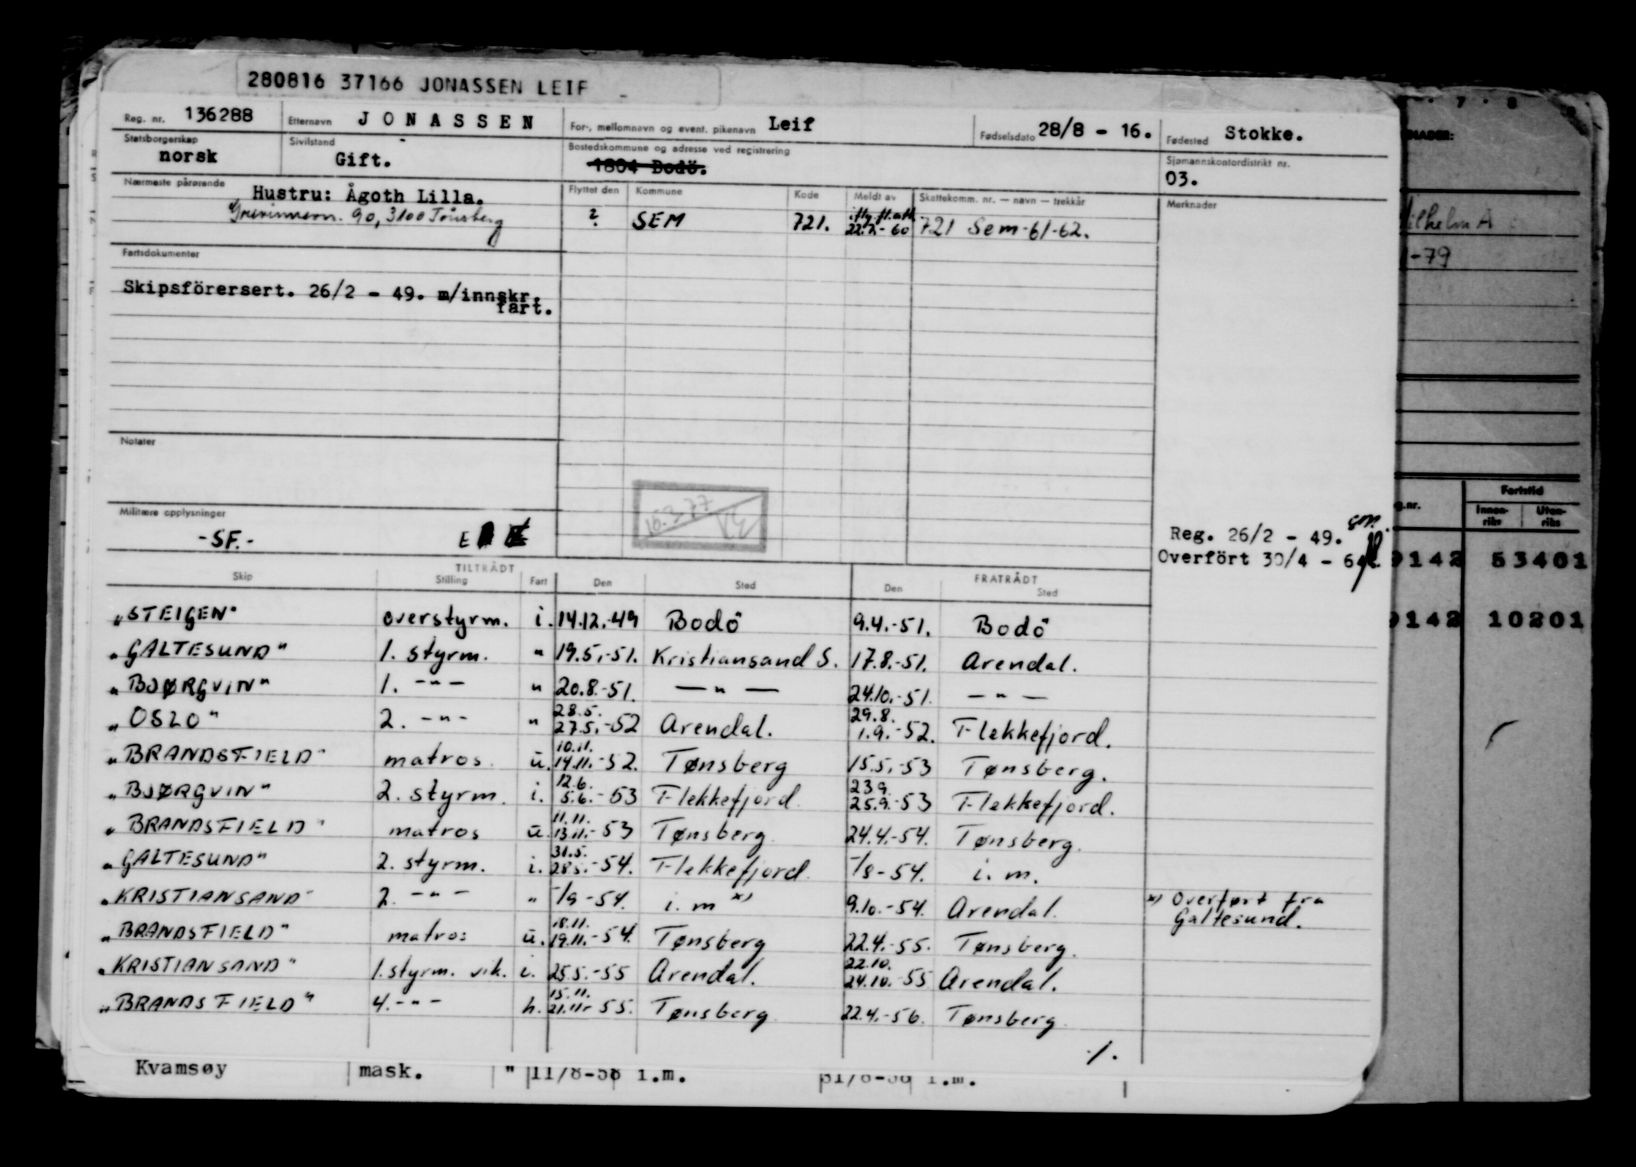 280816 37166 JONASSEN LEIF
Reg. nr. 136288 Etternavn JONASSEN For-, mellomnavn og event. pikenavn Leif Fødselsdato 28/8 - 16. Fødested Stokke.
Statsborgerskap norsk Sivilstand Gift. Bostedskommune og adresse ved registrering 1804 Bodö. Sjømannskontordistrikt nr. 03.
Nærmeste pårørende Hustru: Ågoth Lilla. Flyttet den Kommune Kode Meldt av Skattekomm. nr. — navn — trekkår Merknader
90, 3100 Tønsberg ? SEM 721. 22.7.- 60 721 Sem-61-62.
Fartsdokumenter
Skipsförersert. 26/2 - 49. m/innskr. fart.
Notater
16.3.77
Militære opplysninger
-SF.- E
Reg. 26/2 - 49.
Overfört 30/4 - 64
TILTRÅDT FRATRÅDT
Skip Stilling Fart Den Sted Den Sted
"STEIGEN" overstyrm. i. 14.12.-49 Bodö 9.4.-51. Bodö
"GALTESUND" 1. styrm. " 19.5.-51. Kristiansand S. 17.8.-51. Arendal.
"BJØRGVIN" 1. -"- " 20.8.-51. -"- 24.10.-51. -"-
"OSLO" 2. -"- " 28.5. 27.5.-52 Arendal. 29.8. 1.9.-52. Flekkefjord.
"BRANDSFIELD" matros. u. 10.11. 14.11.-52. Tønsberg 15.5.-53 Tønsberg.
"BJØRGVIN" 2. styrm. i. 12.6. 5.6.-53 Flekkefjord. 23.9. 25.9.-53 Flekkefjord.
"BRANDSFIELD" matros u. 11.11. 13.11.-53 Tønsberg 24.4.-54. Tønsberg.
"GALTESUND" 2. styrm. i. 31.5. 28.5.-54. Flekkefjord -/8-54. i.m.
"KRISTIANSAND" 2. -"- " -/9-54. i.m x) 9.10.-54. Arendal. x) Overført fra Galtesund.
"BRANDSFIELD" matros u. 18.11. 19.11.-54. Tønsberg 22.4.-55. Tønsberg.
"KRISTIANSAND" 1. styrm. vik. i. 25.5.-55 Arendal. 22.10. 24.10.-55 Arendal.
"BRANDSFIELD" 4. -"- h. 15.11. 21.11-55. Tønsberg 22.4.-56. Tønsberg.
./.
Kvamsøy mask. " 11/8-56 i.m. 31/8-56 i.m.
7 8
ilhelm A
-79
g.nr. Fartstid
Innenriks Utenriks
9142 53401
9142 10201